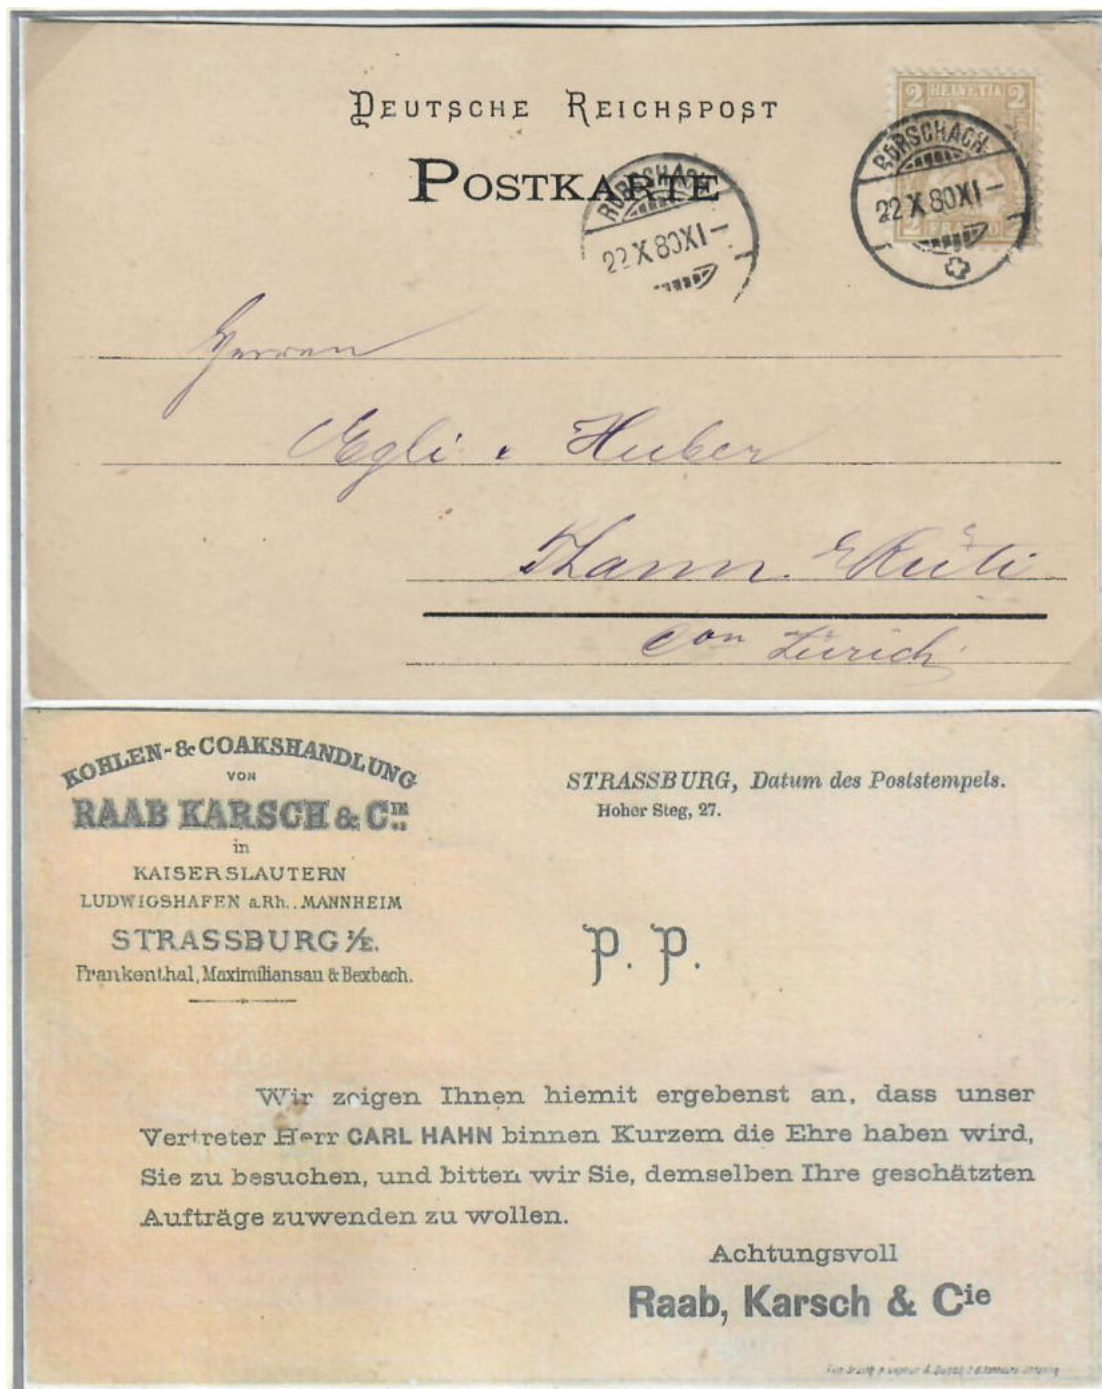 DEUTSCHE REICHSPOST
POSTKARTE
2 HELVETIA 2
2 FRANCO
RORSCHACH
22 X 80 XI –
RORSCHACH
22 X 80 XI –
Herren
Egli & Huber
Thann. Rüti
Con Zürich
KOHLEN- & COAKSHANDLUNG
VON
RAAB KARSCH & CIE.
in
KAISERSLAUTERN
LUDWIGSHAFEN a.Rh., MANNHEIM
STRASSBURG I/E.
Frankenthal, Maximiliansau & Bexbach.
STRASSBURG, Datum des Poststempels.
Hoher Steg, 27.
P. P.
Wir zeigen Ihnen hiemit ergebenst an, dass unser
Vertreter Herr CARL HAHN binnen Kurzem die Ehre haben wird,
Sie zu besuchen, und bitten wir Sie, demselben Ihre geschätzten
Aufträge zuwenden zu wollen.
Achtungsvoll
Raab, Karsch & Cie